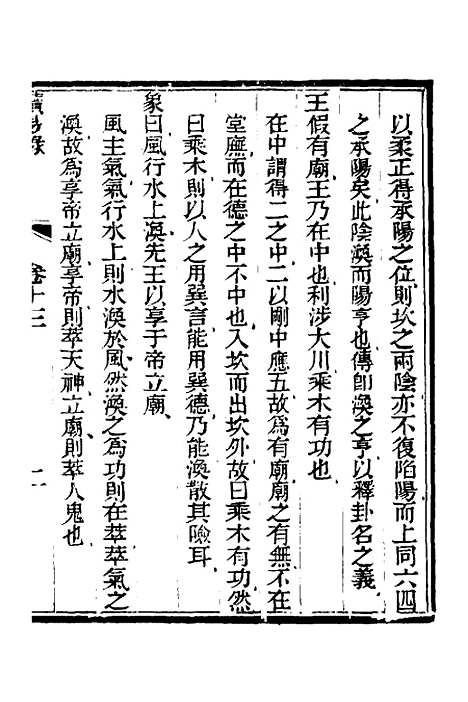 以柔正得承陽之位則坎之兩陰亦不復陷陽而上同六四
之承陽矣此陰渙而陽亨也傳卽渙之亨以釋卦名之義
王假有廟王乃在中也利涉大川乘木有功也
在中謂得二之中二以剛中應五故爲有廟廟之有無不在
堂廡而在德之中不中也入坎而出坎外故曰乘木有功然
曰乘木則以人之用巽言能用巽德乃能渙散其險耳
象曰風行水上渙先王以享于帝立廟
風主氣氣行水上則水渙於風然渙之爲功則在萃萃氣之
渙故爲享帝立廟享帝則萃天神立廟則萃人鬼也
讀易錄
卷十三
二